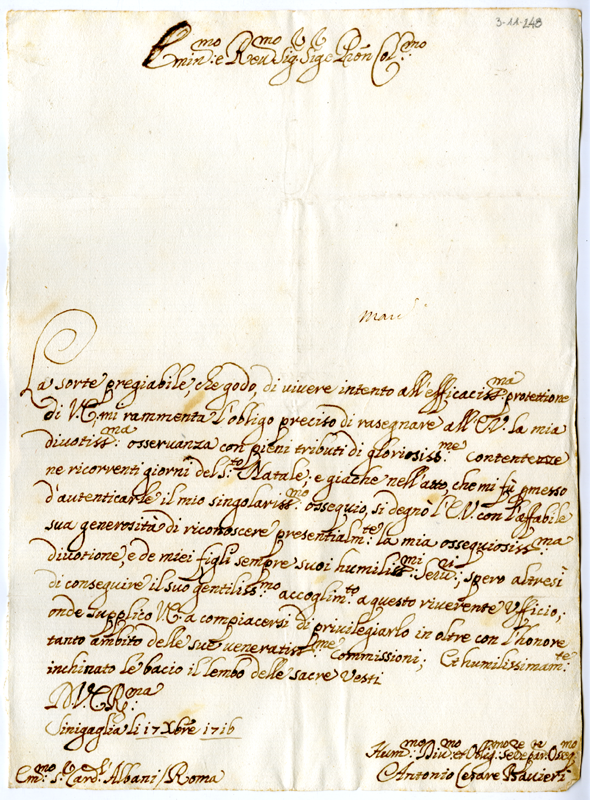 3-11-248
Emin:mo e Reu:mo Sig:r Sig:r e Pron Col:mo
La sorte pregiabile, che godo, di vivere intento all'efficaciss:ma protettione
di V.E., mi rammenta l'obligo preciso di rasegnare all'E.V. la mia
divotiss:ma osservanza con pieni tributi di gloriosiss:me Contentezze
ne ricorrenti giorni del S:to Natale; e giache nell'atto, che mi fù pmesso
d'autenticarle il mio singolariss:mo ossequio, si degnò l'E.V. con l'affabile
sua generosità di riconoscere presentialm:te la mia ossequiosiss:ma
divotione, e de miei figli sempre suoi humiliss:mi Seru:ri; spero altresì
di conseguire il suo gentiliss:mo accoglim:to a questo riverente Ufficio,;
onde supplico V.E. a compiacersi di privilegiarlo in oltre con l'honore
tanto ambito delle sue veneratiss:me Commissioni; Et humilissimam:te
inchinato le bacio il lembo delle sacre Vesti
D.V.E. R:ma
Sinigaglia li 17 Xbre 1716
Hum:mo Diu:mo et Oblig:mo
Em:mo S:r Card:l Albani / Roma
Antonio Cesare Bavieri